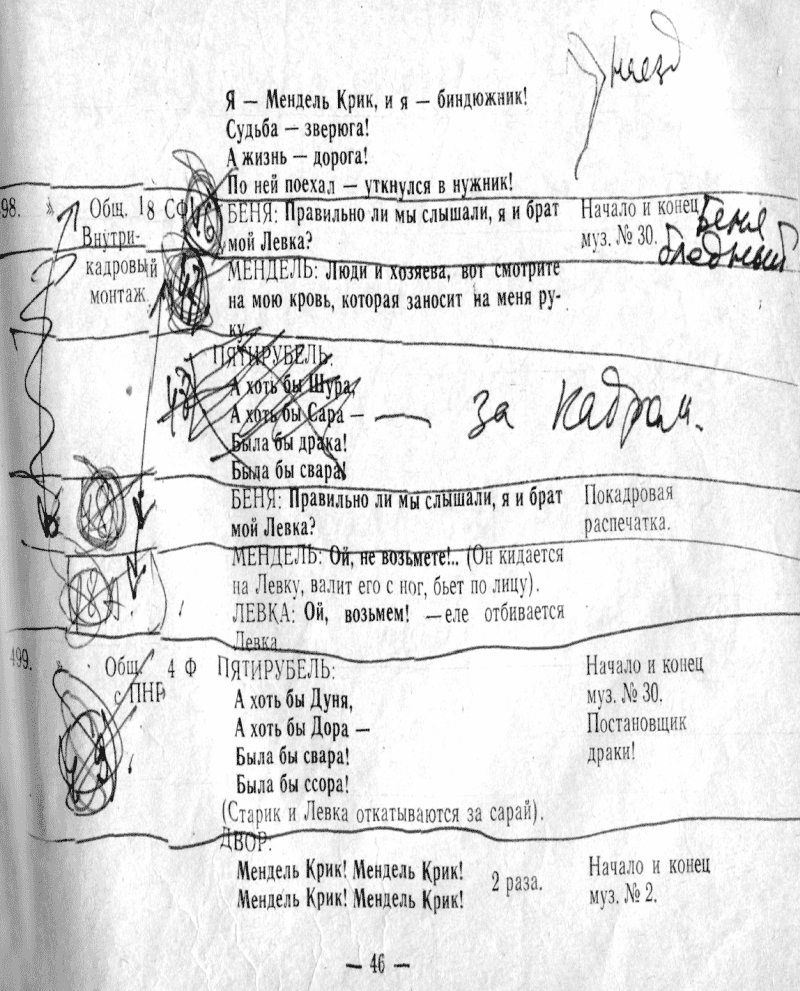 наезд
Я — Мендель Крик, и я — биндюжник!
Судьба — зверюга!
А жизнь — дорога!
По ней поехал — уткнулся в нужник!
98. » Общ. 18 СФ БЕНЯ: Правильно ли мы слышали, я и брат Начало и конец
Внутри- мой Левка? муз. № 30. Беня
бледный
кадровый МЕНДЕЛЬ: Люди и хозяева, вот смотрите
монтаж. на мою кровь, которая заносит на меня ру-
ку
ПЯТИРУБЕЛЬ:
А хоть бы Шура,
А хоть бы Сара — — за кадром.
Была бы драка!
Была бы свара!
БЕНЯ: Правильно ли мы слышали, я и брат Покадровая
мой Левка? распечатка.
МЕНДЕЛЬ: Ой, не возьмете!.. (Он кидается
на Левку, валит его с ног, бьет по лицу).
ЛЕВКА: Ой, возьмем! —еле отбивается
Левка.
499. » Общ. 4 Ф ПЯТИРУБЕЛЬ: Начало и конец
с ПНР А хоть бы Дуня, муз. № 30.
А хоть бы Дора — Постановщик
Была бы свара! драки!
Была бы ссора!
(Старик и Левка откатываются за сарай).
ДВОР:
Мендель Крик! Мендель Крик! 2 раза. Начало и конец
Мендель Крик! Мендель Крик! муз. № 2.
— 46 —